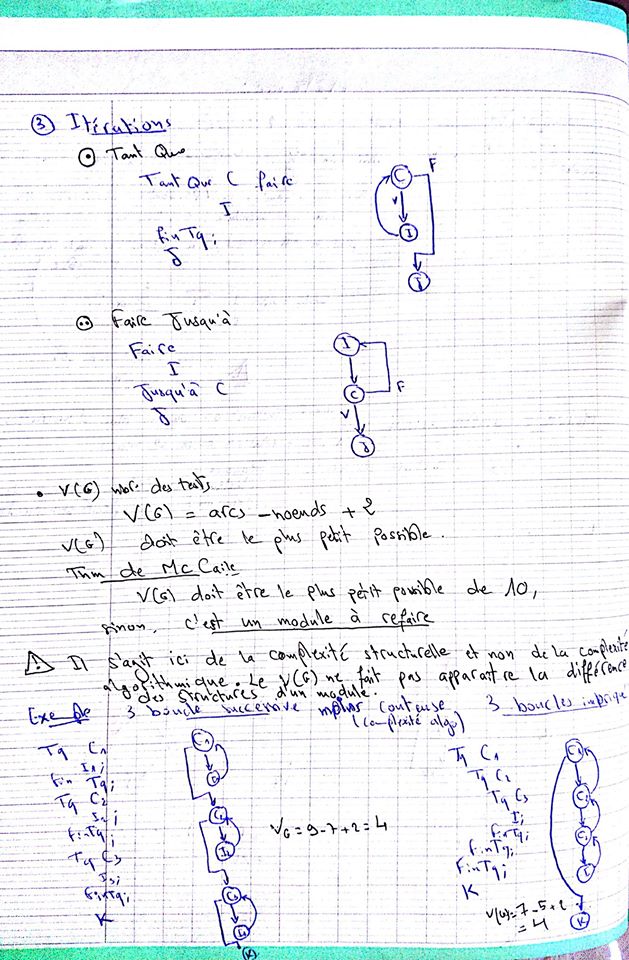 ③ Itérations
Tant Que
Tant Que C faire
I
fin Tq;
J
C
F
V
I
J
Faire Jusqu'à
Faire
I
Jusqu'à C
J
I
C
F
V
J
• V(G) nbre des tests
V(G) = arcs - noends + 2
V(G) doit être le plus petit possible.
Thm de Mc Caile
V(G) doit être le plus petit possible de 10,
sinon, c'est un module à refaire
⚠ Il s'agit ici de la complexité structurelle et non de la complexité
algorithmique. Le V(G) ne fait pas apparaitre la différence
des structures d'un module.
Exemple 3 boucle successive moins couteuse 3 boucles imbriqué
(complexité algo)
Tq C1
I1;
fin Tq;
Tq C2
I2;
finTq;
Tq C3
I3;
finTq;
K
C1
I1
C2
I2
C3
I3
K
VG = 9-7+2 = 4
Tq C1
Tq C2
Tq C3
I;
finTq;
finTq;
finTq;
K
V(G) = 7-5+2
= 4
C1
C2
C3
I
K